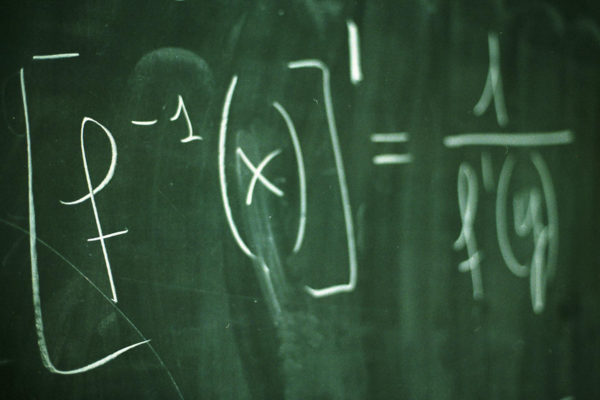 [f⁻¹(x)]' = 1/f'(y)